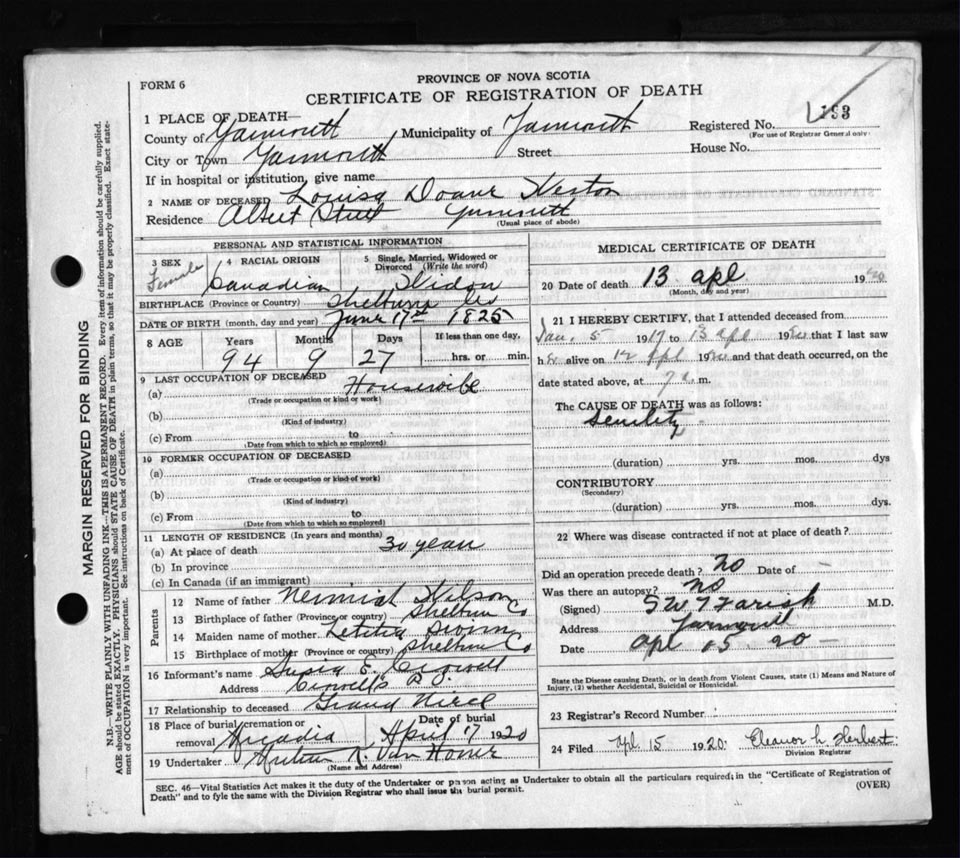 FORM 6
PROVINCE OF NOVA SCOTIA
CERTIFICATE OF REGISTRATION OF DEATH
1 PLACE OF DEATH—
County of Yarmouth / Municipality of Yarmouth
Registered No. 193
(For use of Registrar General only.)
City or Town Yarmouth Street House No.
If in hospital or institution, give name
2 NAME OF DECEASED Louisa Doane
Residence Albert Street Yarmouth
(Usual place of abode)
PERSONAL AND STATISTICAL INFORMATION
3 SEX Female
4 RACIAL ORIGIN Canadian
5 Single, Married, Widowed or Divorced (Write the word)
BIRTHPLACE (Province or Country) Shelburne Co
DATE OF BIRTH (month, day and year) June 17th 1825
8 AGE Years Months Days If less than one day,
94 9 27 hrs. or min.
9 LAST OCCUPATION OF DECEASED
(a) Housewife
(Trade or occupation or kind or work)
(b)
(Kind of industry)
(c) From to
(Date from which to which so employed)
10 FORMER OCCUPATION OF DECEASED
(a)
(Trade or occupation or kind of work)
(b)
(Kind of industry)
(c) From to
(Date from which to which so employed)
11 LENGTH OF RESIDENCE (In years and months)
(a) At place of death 30 years
(b) In province
(c) In Canada (if an immigrant)
Parents
12 Name of father
13 Birthplace of father (Province or country) Shelburn Co
14 Maiden name of mother Letitia
15 Birthplace of mother (Province or country) Shelburn Co
16 Informant's name Susia E. Crowell
Address Crowells P.O.
17 Relationship to deceased Grand Niece
18 Place of burial, cremation or removal Arcadia Date of burial April 17 1920
19 Undertaker Van Horne
(Name and Address)
MEDICAL CERTIFICATE OF DEATH
20 Date of death 13 Apl 1920
(Month, day and year)
21 I HEREBY CERTIFY, that I attended deceased from
Jan. 5 1917 to 13 apl 1920 that I last saw
h alive on 12 Apl 1920 and that death occurred, on the
date stated above, at 7 a. m.
The CAUSE OF DEATH was as follows:
Senility
(duration) yrs. mos. dys
CONTRIBUTORY
(Secondary)
(duration) yrs. mos. dys.
22 Where was disease contracted if not at place of death?
Did an operation precede death? No Date of
Was there an autopsy? No
(Signed) Farish M.D.
Address Yarmouth
Date Apl 15. 20
State the Disease causing Death, or in death from Violent Causes, state (1) Means and Nature of Injury, (2) whether Accidental, Suicidal or Homicidal.
23 Registrar's Record Number
24 Filed Apl 15 1920 Eleanor L Herbert
Division Registrar
SEC. 46—Vital Statistics Act makes it the duty of the Undertaker or person acting as Undertaker to obtain all the particulars required; in the "Certificate of Registration of
Death" and to fyle the same with the Division Registrar who shall issue the burial permit.
(OVER)
MARGIN RESERVED FOR BINDING
N.B.—WRITE PLAINLY WITH UNFADING INK—THIS IS A PERMANENT RECORD. Every item of information should be carefully supplied.
AGE should be stated EXACTLY. PHYSICIANS should STATE CAUSE OF DEATH in plain terms, so that it may be properly classified. Exact state-
ment of OCCUPATION is very important. See instructions on back of Certificate.